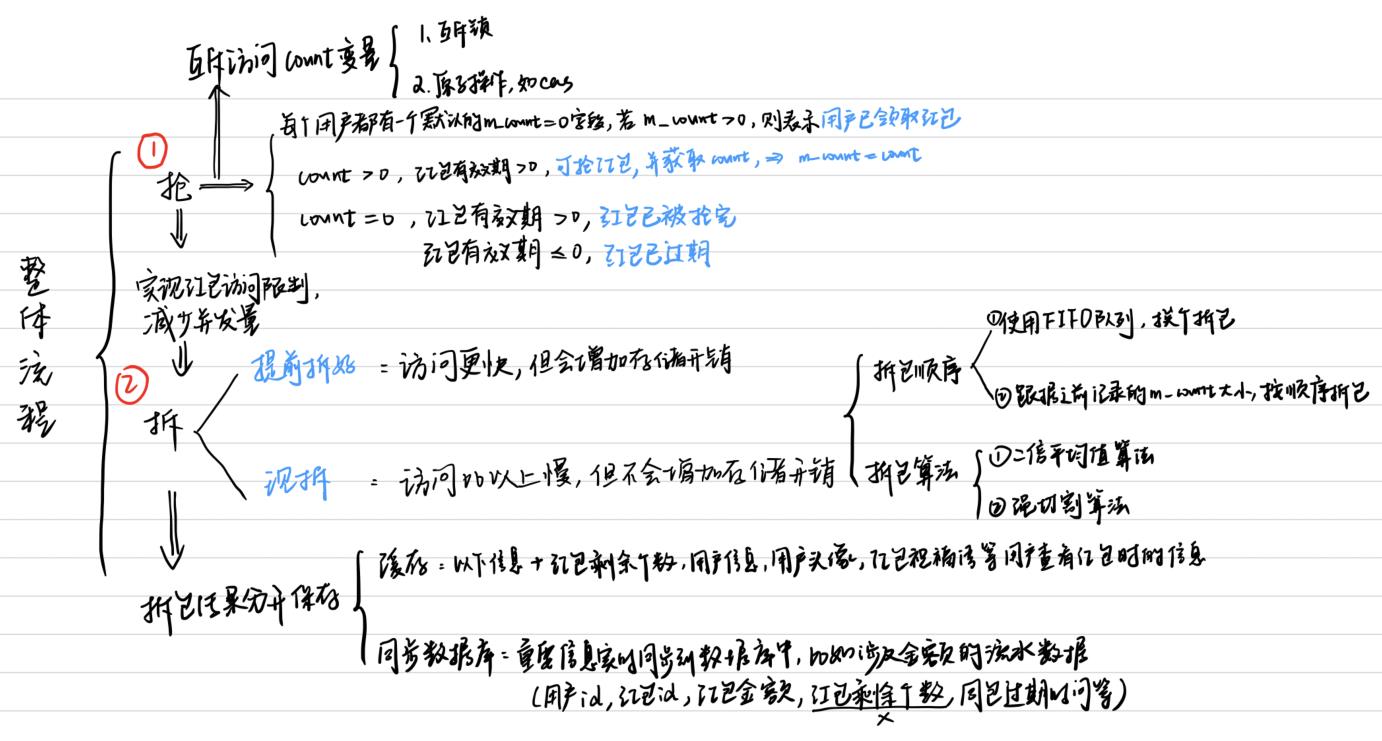 互斥访问count变量
1、互斥锁
2、原子操作,如cas
每个用户都有一个默认的m_count=0字段,若 m_count>0,则表示用户已领取红包
①
抢
count>0,红包有效期>0,可抢红包,并获取count,⇒ m_count=count
count=0,红包有效期>0,红包已被抢完
红包有效期≤0,红包已过期
整体流程
实现红包访问限制,
减少并发量
②
拆
提前拆好 = 访问更快,但会增加存储开销
现拆 = 访问比以上慢,但不会增加存储开销
拆包顺序
①使用FIFO队列,挨个拆包
②跟据之前记录的m-count大小,按顺序拆包
拆包算法
①二倍平均值算法
②强切割算法
拆包结果分开保存
缓存:以下信息+红包剩余个数,用户信息,用户头像,红包祝福语等用户查看红包时的信息
同步数据库=重要信息实时同步到数据库中,比如涉及金额的流水数据
(用户id,红包id,红包金额,红包剩馀个数,同包过期时间等)
×